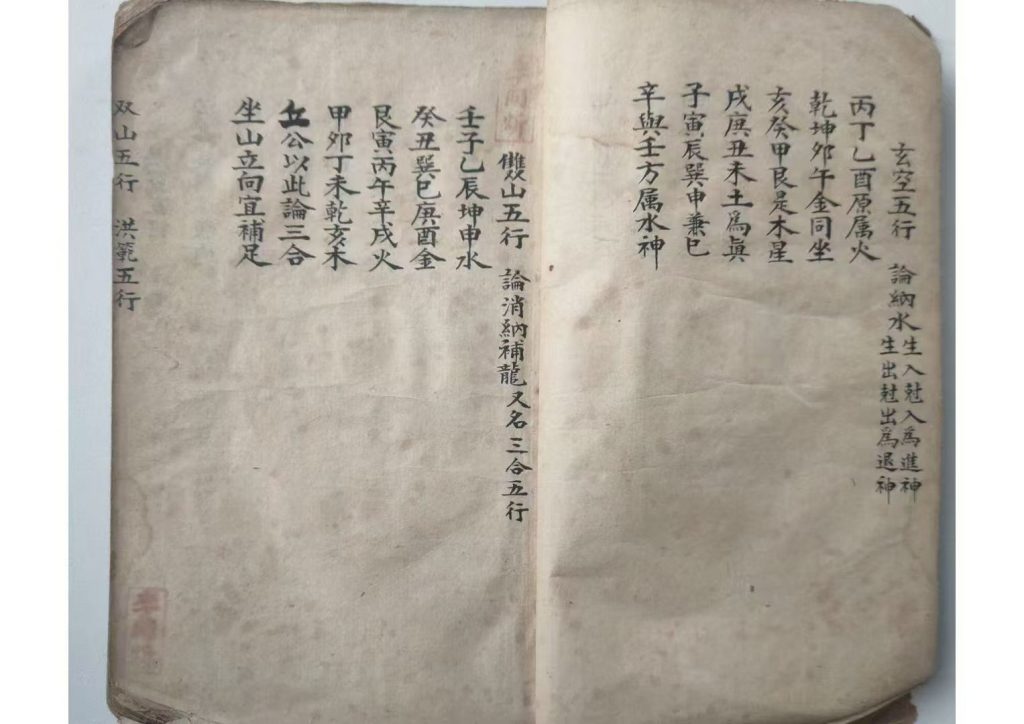 玄空五行 論納水生入尅入為進神
生出尅出為退神
丙丁乙酉原属火
乾坤夘午金同坐
亥癸甲艮是木星
戌庚丑未土為眞
子寅辰巽申兼巳
辛與壬方属水神
雙山五行 論消納補龍又名三合五行
壬子乙辰坤申水
癸丑巽巳庚酉金
艮寅丙午辛戌火
甲夘丁未乾亥木
丘公以此論三合
坐山立向宜補足
双山五行 洪範五行